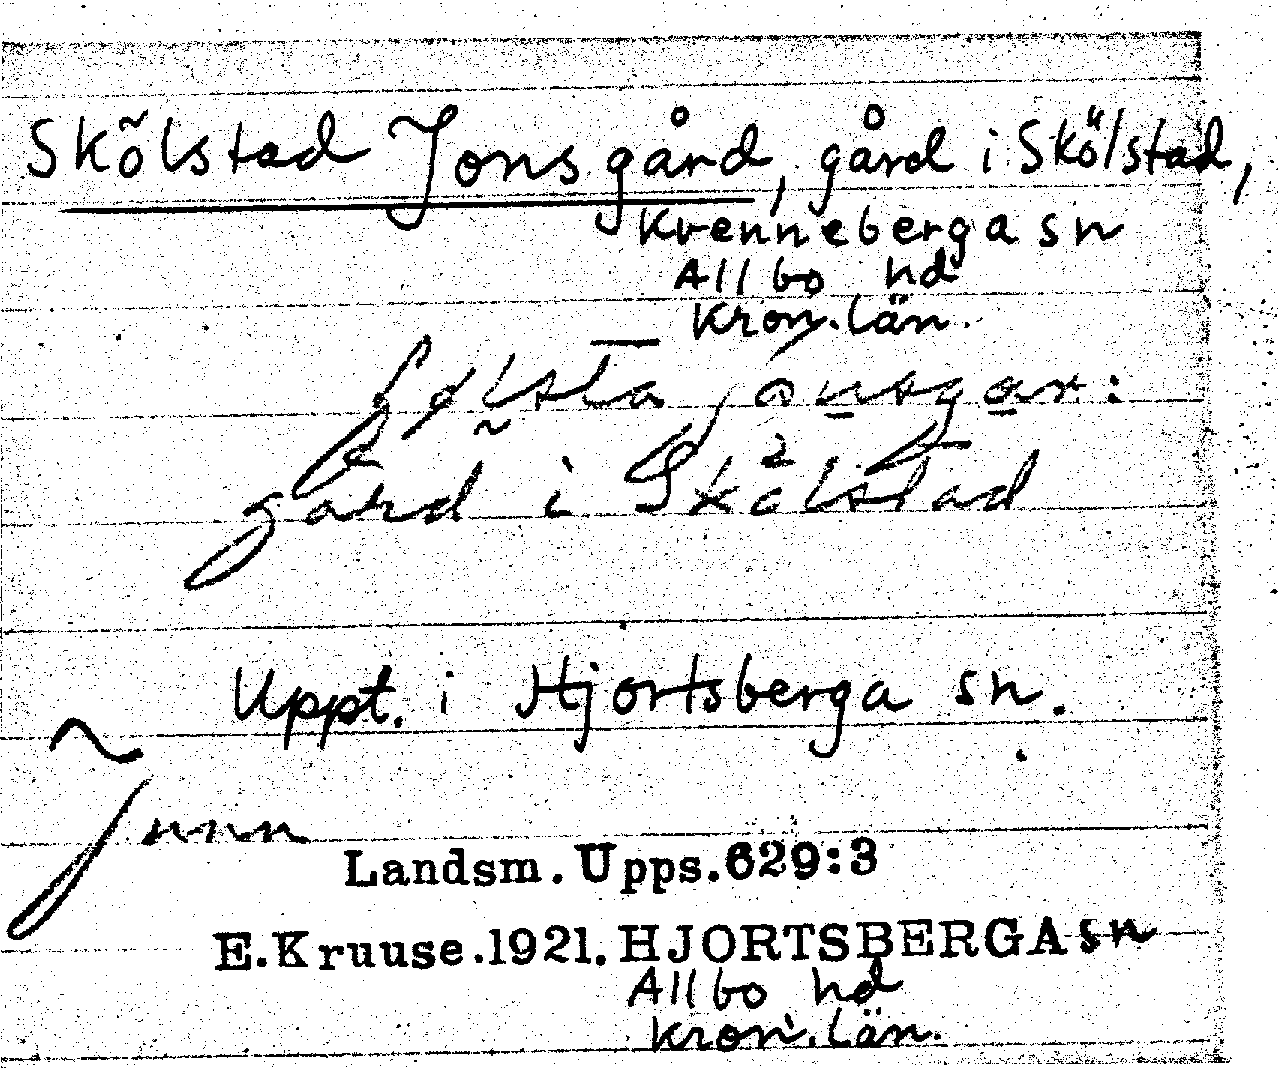 Skõlstad Jonsgård, gård i Skölstad,
Kvenneberga sn
Allbo hd
Kron. län.
gård i Skölstad
Uppt. i Hjortsberga sn.
Landsm. Upps. 629:3
E. Kruuse. 1921. HJORTSBERGA sn
Allbo hd
Kron. län.